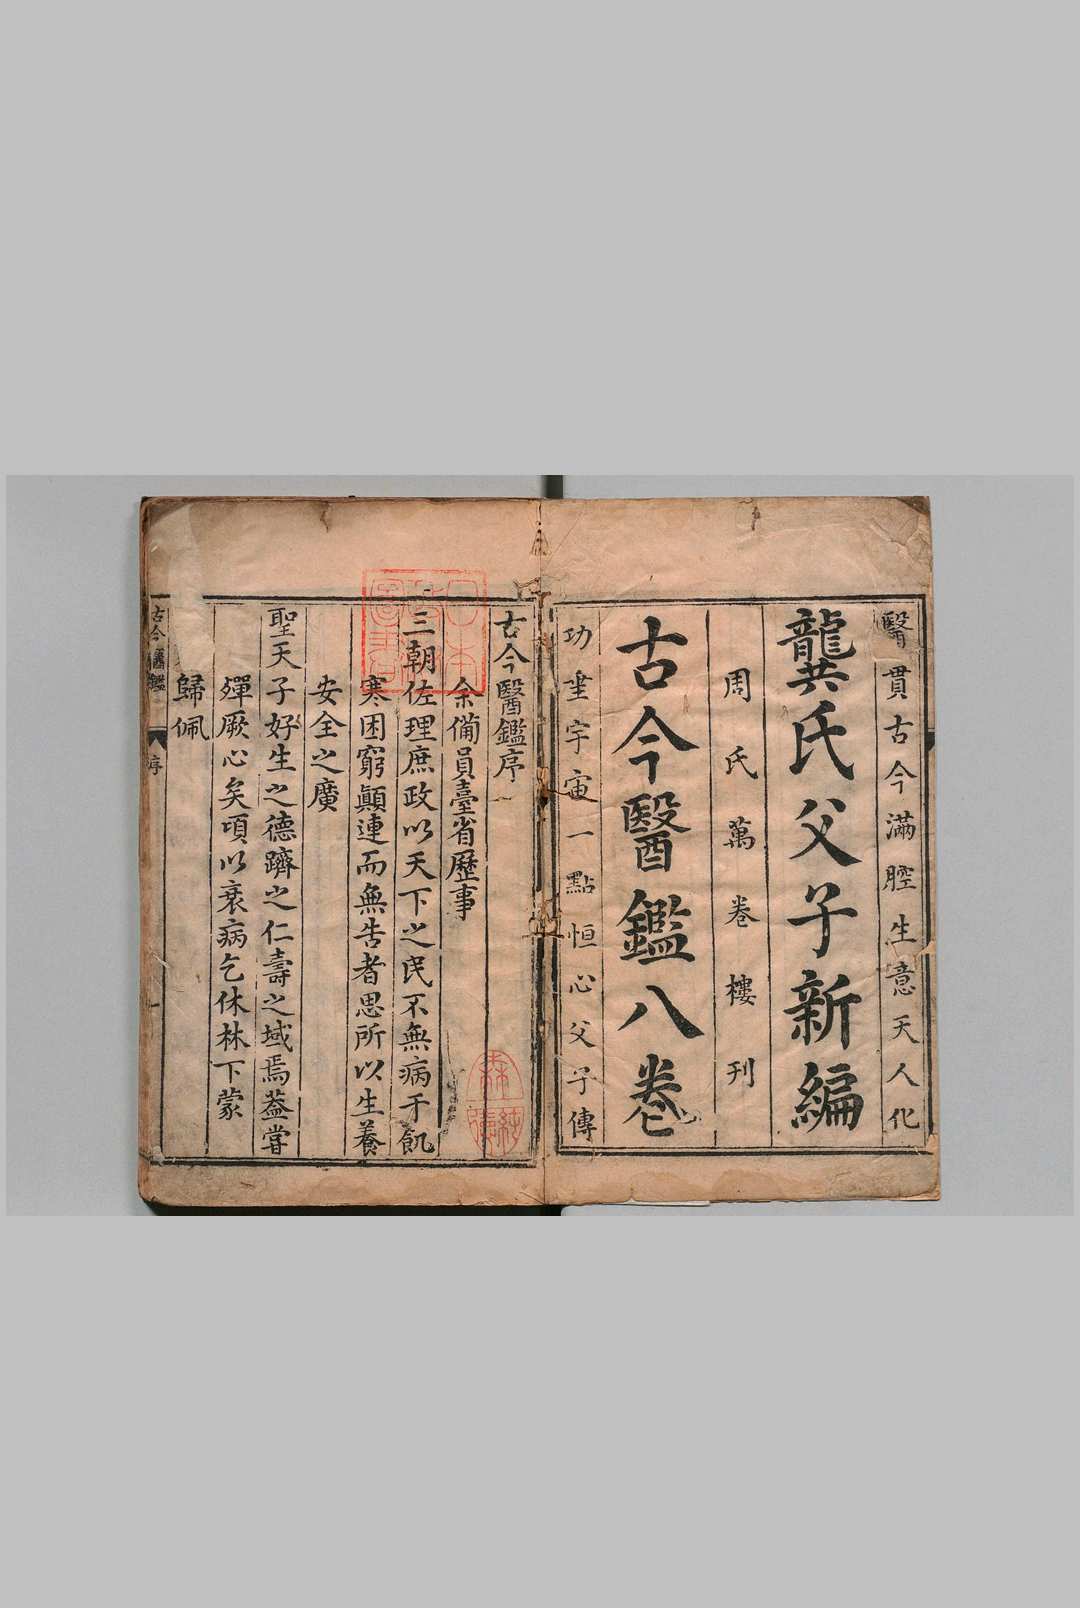 醫貫古今滿腔生意天人化
龔氏父子新編
周氏萬卷樓刊
古今醫鑑八卷
功垂宇宙一點恒心父子傳
古今醫鑑序
余備員臺省歷事
三朝佐理庶政以天下之民不無病于飢
寒困窮顚連而無告者思所以生養
安全之廣
聖天子好生之德躋之仁壽之域焉葢嘗
殫厥心矣頃以衰病乞休林下蒙
歸佩
古今醫鑑 序 一
日本
圖書